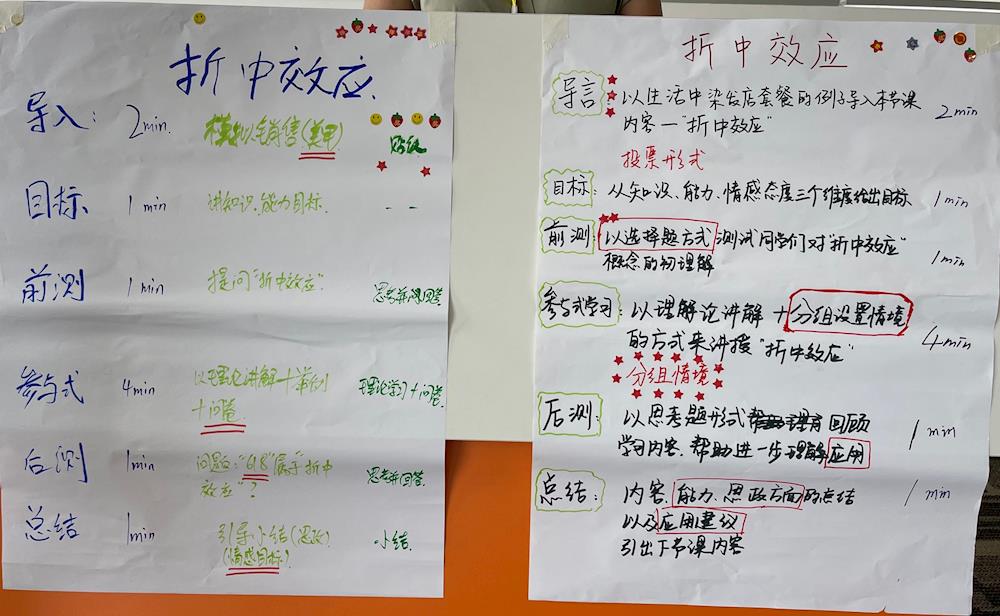 折中效应.
导入: 2min. 模拟销售(美甲) 贴纸
目标 1min 讲知识、能力目标.
前测 1min 提问"折中效应". 思考并回答
参与式 4min 以理论讲解+举例 理论学习+问卷.
+问卷
后测 1min 问题: "618"属于"折中 思考并回答.
效应"?
总结 1min 引导小结(思政) 小结.
(情感目标)
折中效应
导言: 以生活中染发店套餐的例子导入本节课 2min
内容—"折中效应"
投票形式
目标: 从知识、能力、情感态度三个维度给出目标 1min
前测: 以选择题方式测试同学们对"折中效应" 1min
概念的初理解
参与式学习: 以理解论讲解+分组设置情境 4min
的方式来讲授"折中效应"
分组情境
后测: 以思考题形式 回顾 1min
学习内容、帮助进一步理解应用
总结: 内容、能力、思政方面的总结 1min
以及应用建议
引出下节课内容